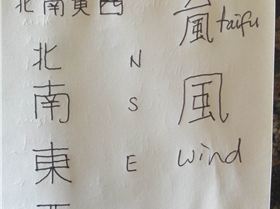 北南東西
嵐 taifu
北 N
南 S
風
東 E
wind